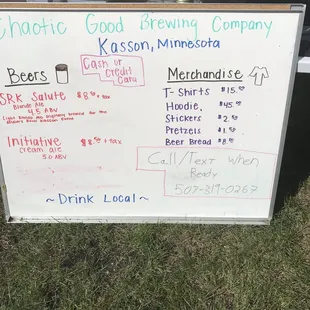 Chaotic Good Brewing Company
Kasson, Minnesota
Cash or
Credit
Card
Beers
SRK Salute $8.00 + tax
Blonde Ale
4.5 ABV
Initiative $8.00 + tax
cream ale
5.0 ABV
Merchandise
T-Shirts $15.00
Hoodie $45.00
Stickers $2.00
Pretzels $1.50
Beer Bread $8.00
Call/Text when
Ready
507-319-0267
~Drink Local~